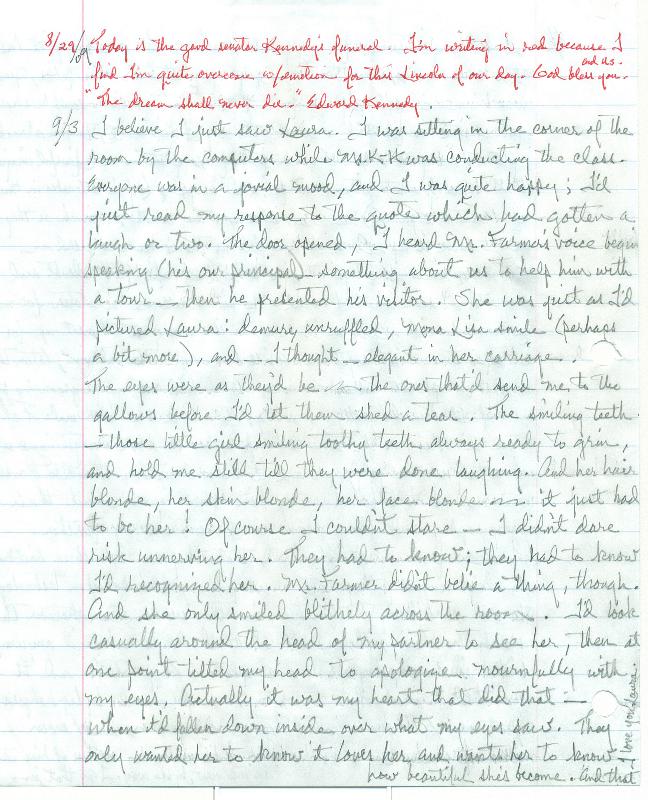 8/29/09 Today is the good senator Kennedy's funeral. I'm writing in red because I
find I'm quite overcome w/emotion for this Lincoln of our day. God bless you and us.
"The dream shall never die." Edward Kennedy.
9/3 I believe I just saw Laura. I was sitting in the corner of the
room by the computers while Ms. K-H was conducting the class.
Everyone was in a jovial mood, and I was quite happy; I'd
just read my response to the quote which had gotten a
laugh or two. The door opened, I heard Mr. Farmer's voice begin
speaking (he's our principal) — something about us to help him with
a tour — then he presented his visitor. She was just as I'd
pictured Laura: demure, unruffled, Mona Lisa smile (perhaps
a bit more), and — I thought — elegant in her carriage.
The eyes were as they'd be — the ones that'd send me to the
gallows before I'd let them shed a tear. The smiling teeth
— those little girl smiling toothy teeth always ready to grin,
and hold me still till they were done laughing. And her hair
blonde, her skin blonde, her face blonde — it just had
to be her! Of course I couldn't stare — I didn't dare
risk unnerving her. They had to know; they had to know
I'd recognized her. Mr. Farmer didn't belie a thing, though.
And she only smiled blithely across the room. I'd look
casually around the head of my partner to see her, then at
one point tilted my head to apologize mournfully with
my eyes. Actually it was my heart that did that —
when it'd fallen down inside over what my eyes saw. They
only wanted her to know it loves her and wants her to know
how beautiful she's become. And that
I love you Laura.